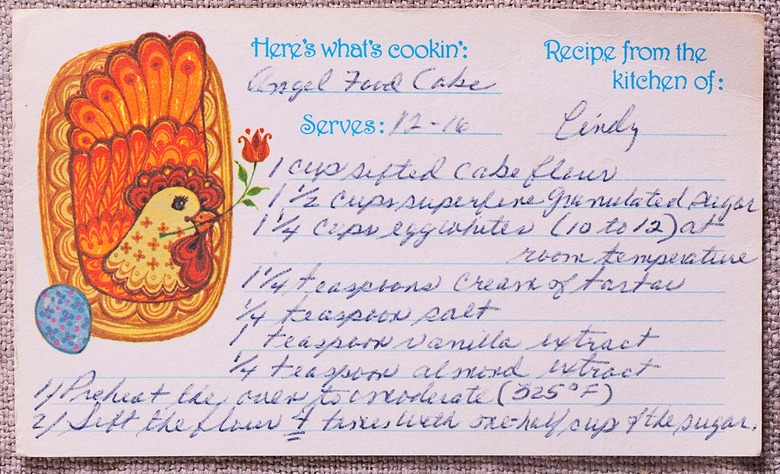 Here's what's cookin':
Recipe from the
kitchen of:
Angel Food Cake
Serves: 12-16
Cindy
1 cup sifted cake flour
1 1/2 cups superfine granulated sugar
1 1/4 cups egg whites (10 to 12) at
room temperature
1 1/4 teaspoons cream of tartar
1/4 teaspoon salt
1 teaspoon vanilla extract
1/4 teaspoon almond extract
1) Preheat the oven to moderate (325°F)
2) Sift the flour 4 times with one-half cup of the sugar.